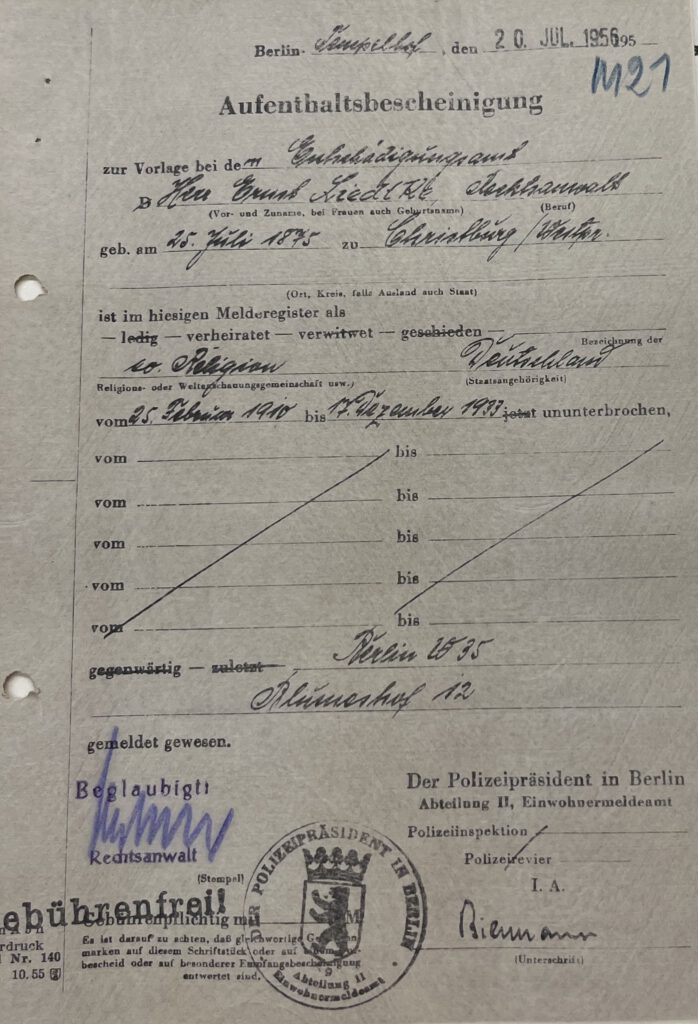 Berlin- Tempelhof, den 20. JUL. 1956 95
M21
Aufenthaltsbescheinigung
zur Vorlage bei dem Entschädigungsamt
Herr Ernst Liedtke, Rechtsanwalt
(Vor- und Zuname, bei Frauen auch Geburtsname) (Beruf)
geb. am 25. Juli 1875 zu Christburg/Westpr.
(Ort, Kreis, falls Ausland auch Staat)
ist im hiesigen Melderegister als
— ledig — verheiratet — verwitwet — geschieden —
Bezeichnung der
Religion Deutschland
Religions- oder Weltanschauungsgemeinschaft usw.) (Staatsangehörigkeit)
vom 25. Februar 1910 bis 17. Dezember 1933 jetzt ununterbrochen,
vom bis
vom bis
vom bis
vom bis
vom bis
gegenwärtig — zuletzt Berlin W 35
Blumeshof 12
gemeldet gewesen.
Beglaubigt:
Rechtsanwalt
Der Polizeipräsident in Berlin
Abteilung II, Einwohnermeldeamt
Polizeiinspektion
Polizeirevier
I. A.
Biermann
(Unterschrift)
(Stempel)
ebührenfrei!
Gebührenpflichtig mit DM
Es ist darauf zu achten, daß gleichwertige
marken auf diesem Schriftstück oder auf
bescheid oder auf besonderer Empfangsbescheinigung
entwertet sind.
DER POLIZEIPRÄSIDENT IN BERLIN
9
Abteilung II
Einwohnermeldeamt
rdruck
Nr. 140
10. 55